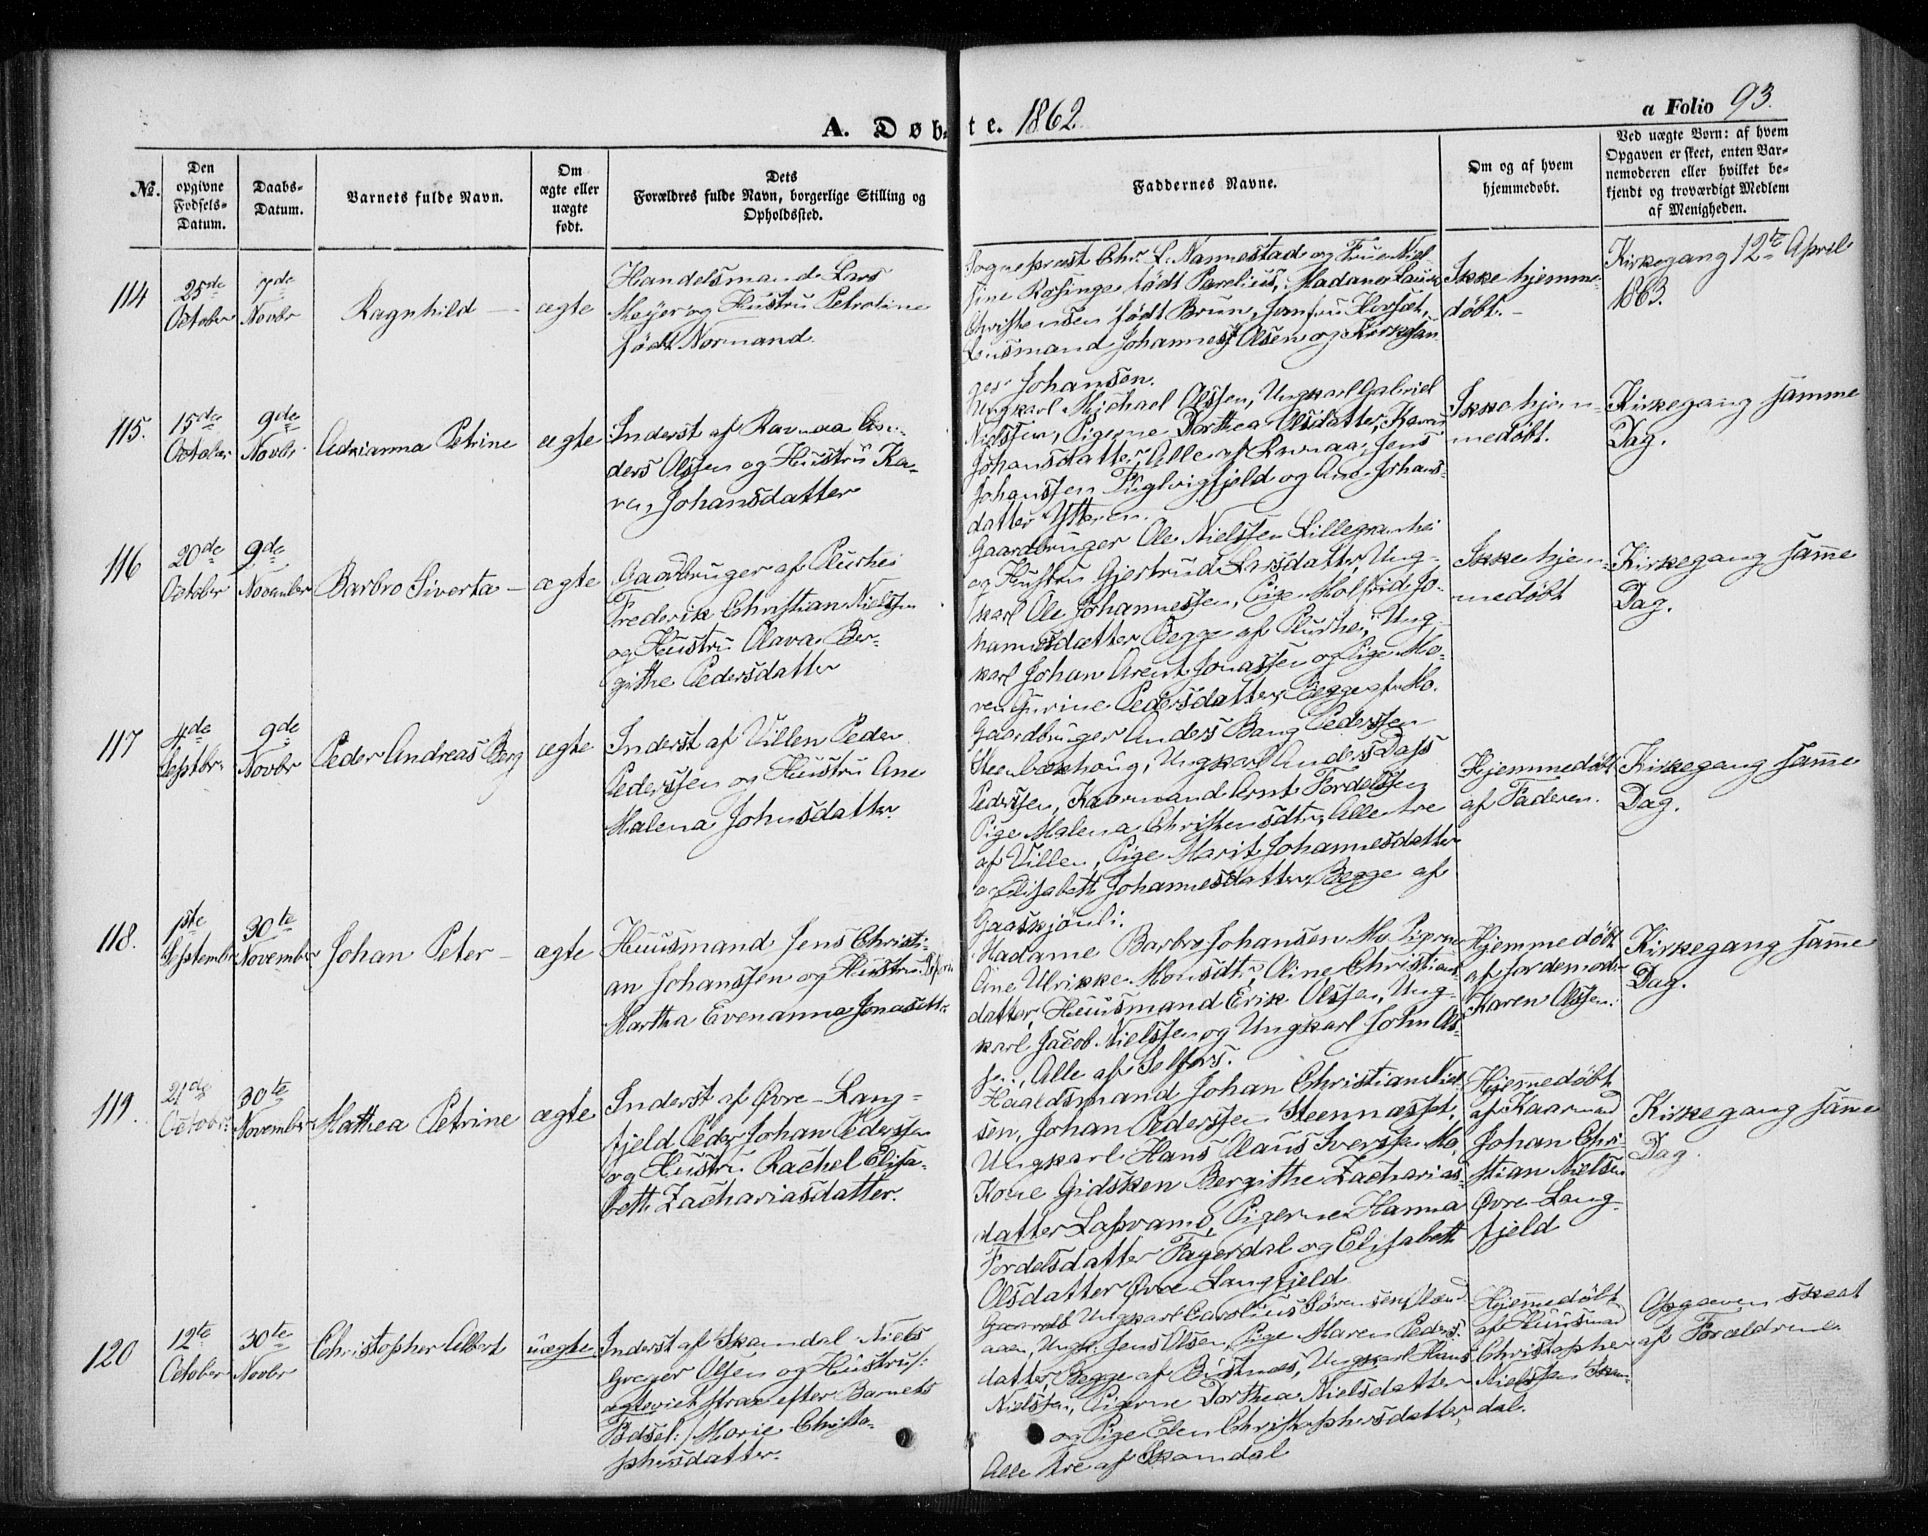 A. Døbte. 1862
a Folio 93.
No.
Den
opgivne
Fødsels-
Datum.
Daabs-
Datum.
Barnets fulde Navn.
Om
ægte eller
uægte
født.
Dets
Forældres fulde Navn, borgerlige Stilling og
Opholdssted.
Faddernes Navne.
Om og af hvem
hjemmedøbt.
Ved uægte Børn: af hvem
Opgaven er skeet, enten Bar-
nemoderen eller hvilket be-
kjendt og troværdigt Medlem
af Menigheden.
114
25de
October
7de
Novbr
Ragnhild
ægte
Handelsmand Lars
Meyer og Hustru Petroline
født Normand.
Sogneprest Chr. L. Nannestad og Frue Niel-
sine Røsinge født Parelius, Madame
Christensen født Brun, Jomfru
Lensmand Johannes Olsen og Kirkesan
ger Johansen.
Ikke hjemme-
døbt.
Kirkegang 12te April
1863.
115.
15de
October
9de
Novbr
Adrianna Petrine
ægte
Inderst af Ravnaa An-
ders Olssen og Hustru Ka-
ren Johansdatter
Ungkarl Michael Olssen, Ungkarl Gabriel
Nielssen, Pigerne Dorthea Olsdatter, Karen
Johansdatter, Alle af Ravnaa, Jens
Johanssen Fuglvigfjeld og Ane Johans-
datter Ytteren.
Ikke hjem-
medøbt.
Kirkegang samme
Dag.
116
20de
October
9de
November
Barbro Siverta
ægte
Gaardbruger af Plurhei
Frederik Christian Nielssen
og Hustru Olava Ber-
githe Pedersdatter
Gaardbruger Ole Nielssen
og Hustru Gjertrud Larsdatter, Ung-
karl Ole Johannessen, Pige Molfrid Jo-
hannesdatter Begge af Plurhei, Ung-
karl Johan Arent Jonassen og Pige Ma-
ren Gurine Pedersdatter, Begge af Mo.
Ikke hjem-
medøbt
Kirkegang samme
Dag.
117
4de
Septbr.
9de
Novbr
Peder Andreas Berg
ægte
Inderst af Villen Peder
Pederssen og Hustru Ane
Malena Johnsdatter
Gaardbruger Anders Bang Pederssen
Steenbækhoug, Ungkarl Anders Dass
Pederssen, Kaarmand Arnt Tordelssen
Pige Malena Christensdtr, Alle tre
af Villen, Pige Marit Johannesdatter
og Elisabeth Johannesdatter, Begge af
Gaaskjønli.
Hjemmedøbt
af Faderen.
Kirkegang samme
Dag.
118.
1ste
September
30te
November
Johan Peter
ægte
Huusmand Jens Christi-
an Johanssen og Hustru
Martha Evenanna Jonasdtr.
Madame Barbro Johansen Mo, Pigerne
Ane Ulrikke Monsdtr, Oline Christians-
datter, Huusmand Erik Olssen, Ung-
karl Jacob Nielssen og Ungkarl John Ol-
sen, Alle af Selfors.
Hjemmedøbt
af Jordemoder
Karen Olssen.
Kirkegang samme
Dag.
119.
21de
Octobr.
30te
November
Mathea Petrine
ægte
Inderst af Øvre-Lang-
fjeld Peder Johan Pederssen
og Hustru Rachel Elisa-
beth Zachariasdatter.
Johan Christian Niel-
sen, Johan Pederssen Steennæsset,
Ungkarl Hans Claus Iverssen Mo,
Kone Gidsken Bergithe Zacharias-
datter, Pigerne Hanna
Tordelsdatter Fagerdal og Elisabeth
Olsdatter Øvre Langfjeld
Hjemmedøbt
af Kaarmand
Johan Chri-
stian Nielsen
Øvre-Lang-
fjeld
Kirkegang samme
Dag.
120
12te
October
30te
Novbr
Christopher Albert
uægte
Inderst af Skamdal Niels
Greger Olsen og Hustru /:
ægteviet strax efter Barnets
Fødsel:/ Marie Christo-
phersdatter.
Ungkarl Carolius Sørensen
Ungk. Jens Olsen, Pige Maren Peders-
datter, Begge af Bustnes, Ungkarl Hans
Nielssen, Pigerne Dorthea Nielsdatter
og Pige Elen Christophersdatter
Alle tre af Skamdal
Hjemmedøbt
af Huusmand
Christopher
Nielssen Skam-
dal.
Opgaven skeet
af Forældrene